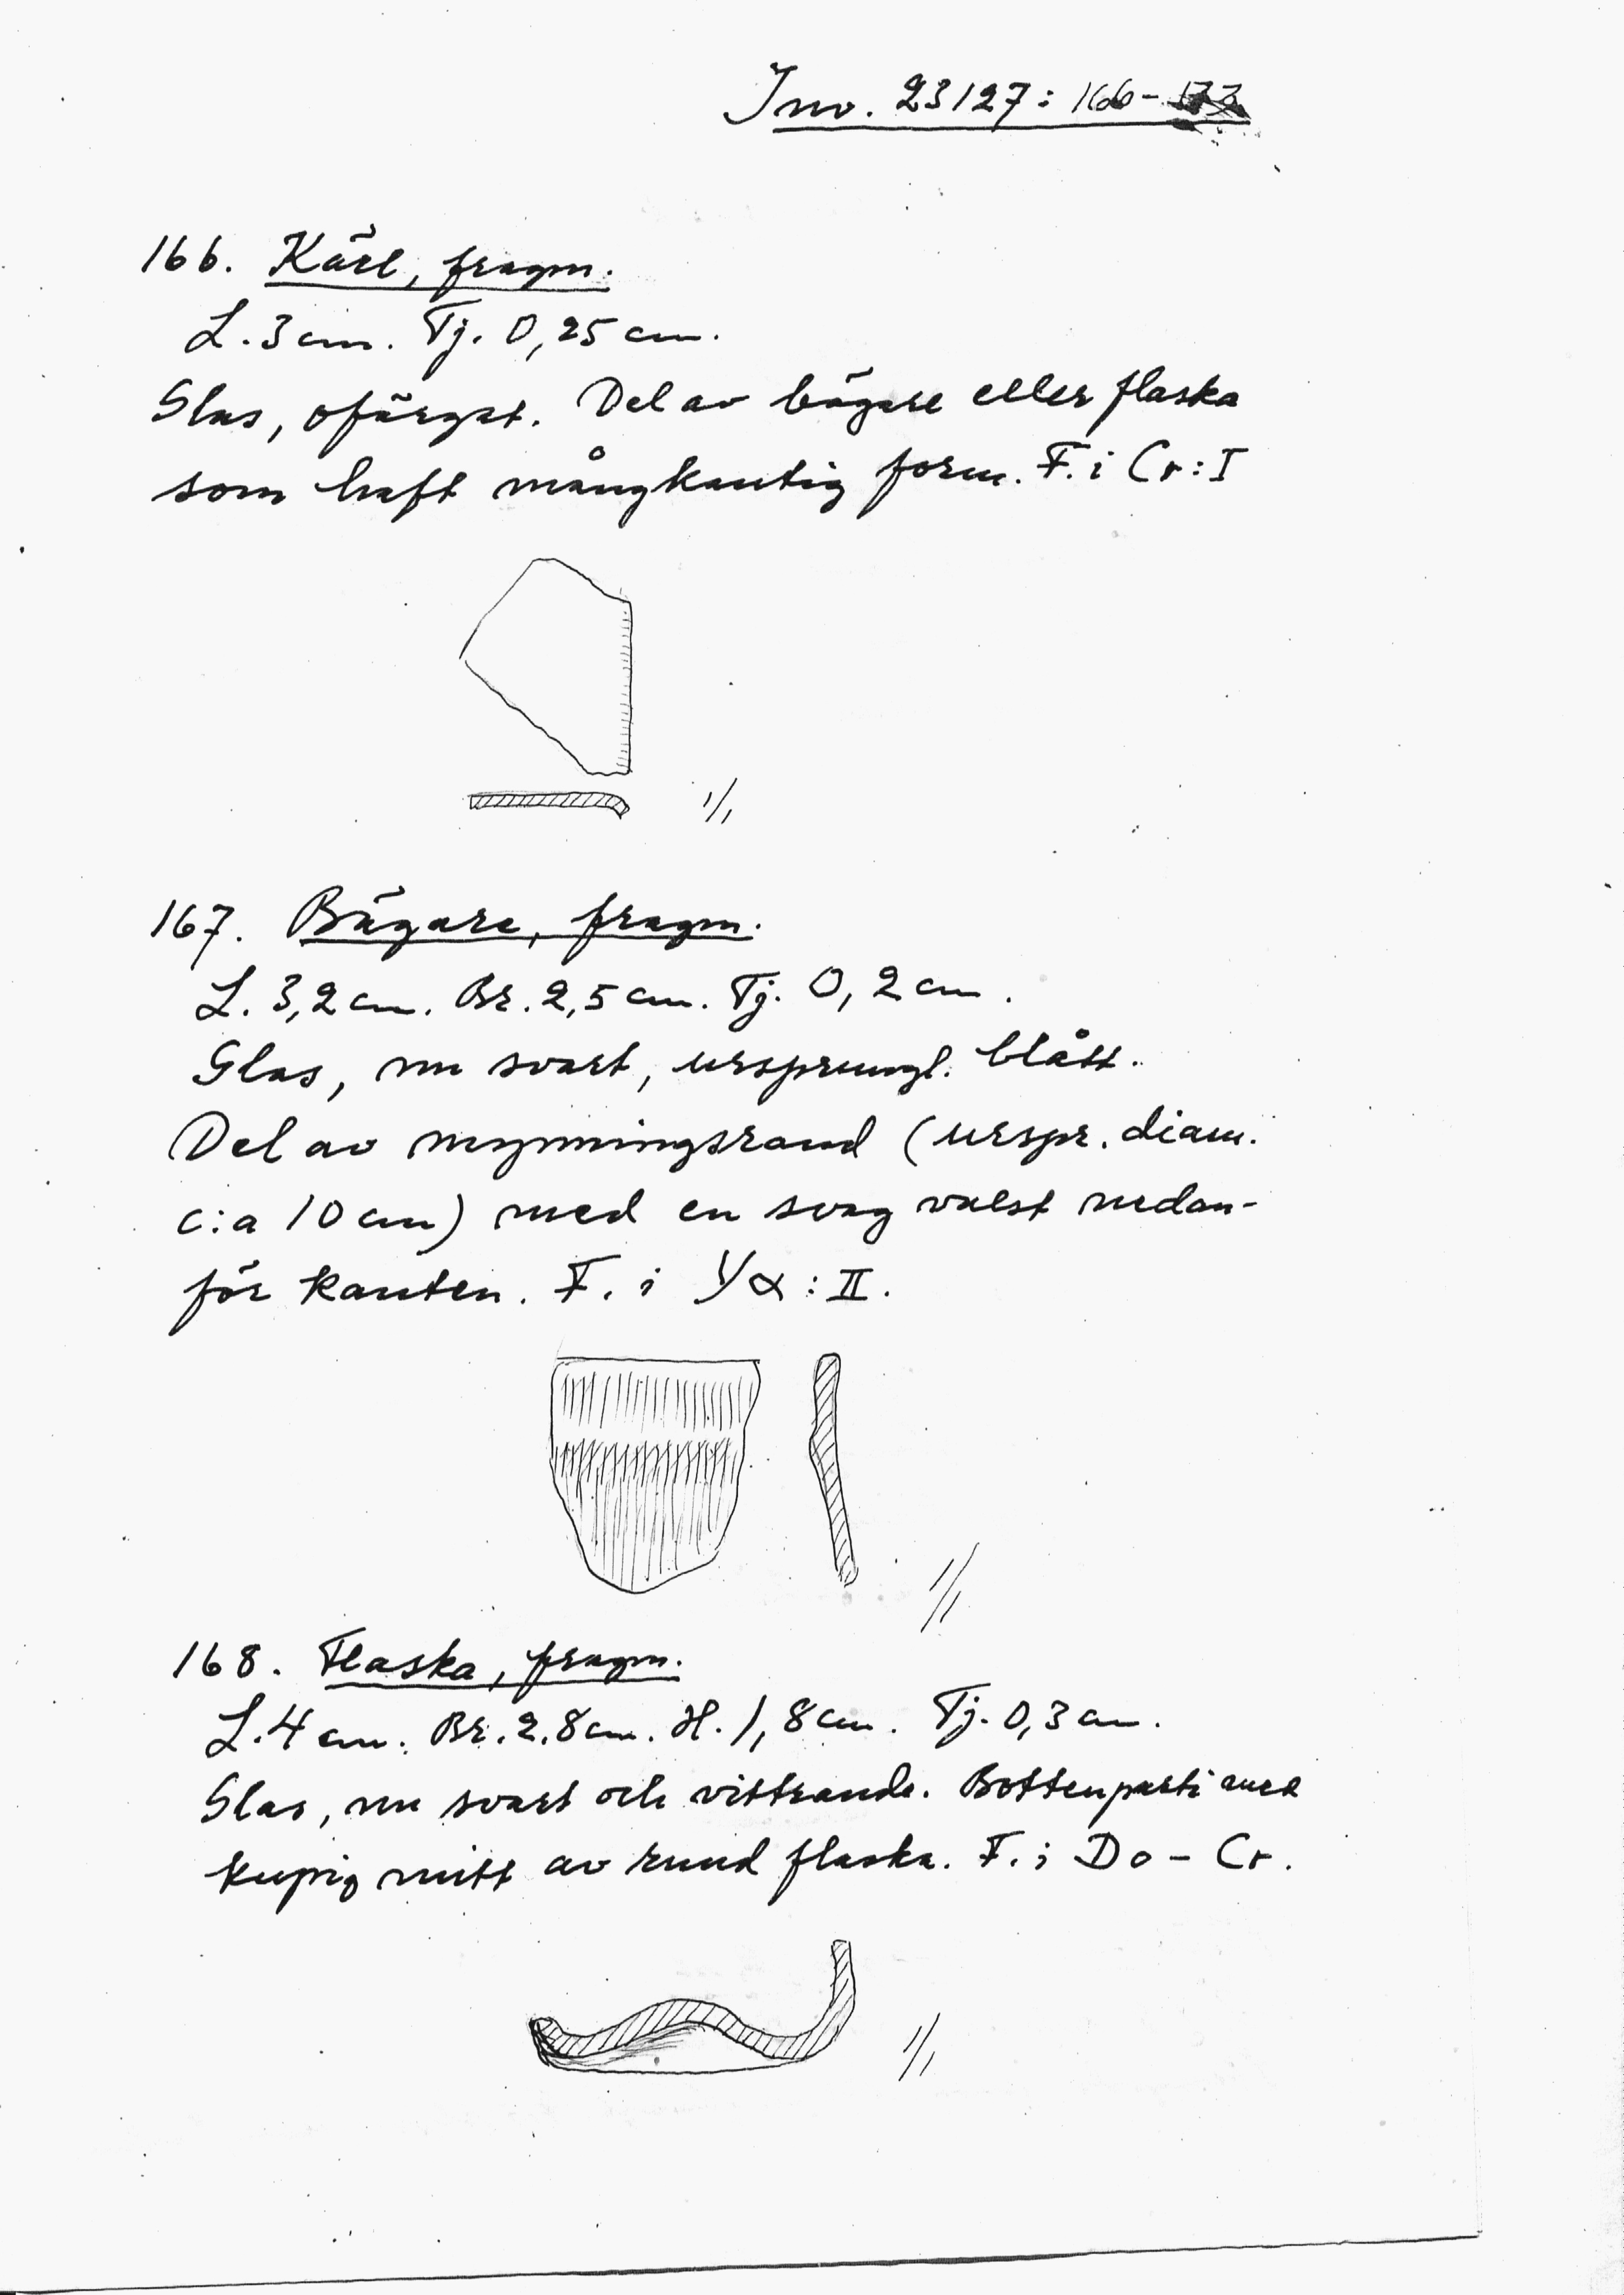 Inv. 23127: 166-
166. Kärl, fragm.
L. 3 cm. Tj. 0,25 cm.
Glas, ofärgat. Del av bägare eller flaska
som haft mångkantig form. F. i Cr: I
1/1
167. Bägare, fragm.
L. 3,2 cm. Br. 2,5 cm. Tj. 0,2 cm.
Glas, nu svart, ursprungl. blått.
Del av mynningsrand (urspr. diam.
c:a 10 cm) med en svag valst nedan-
för kanten. F. i Yα: II.
1/1
168. Flaska, fragm.
L. 4 cm. Br. 2.8 cm. H. 1,8 cm. Tj. 0,3 cm.
Glas, nu svart och vittrande. Bottenparti med
kupig mitt av rund flaska. F. i Do - Cr.
1/1